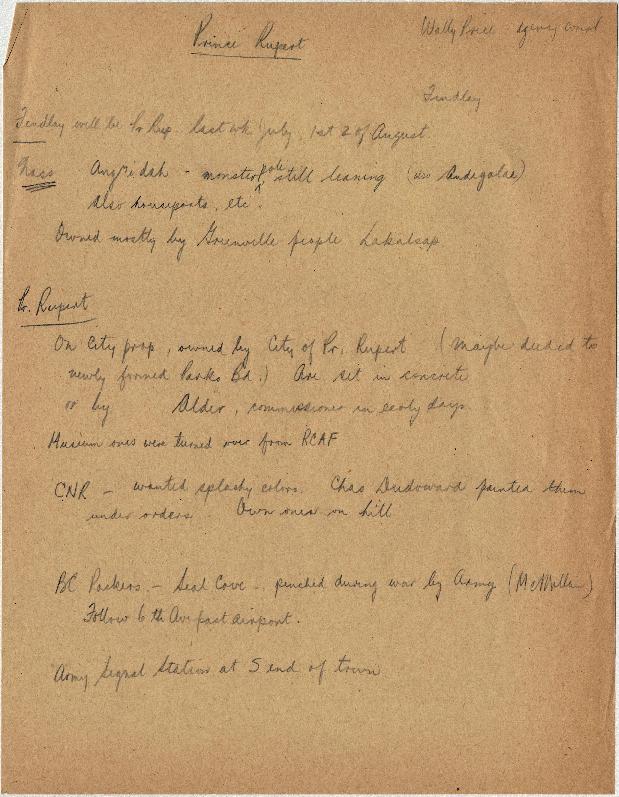 Prince Rupert
Wally Price - agency
Findlay
Findlay will be Pr Rup. last wk July, 1st 2 of August.
Nass Angidah - monster pole still leaning (also Andegolas)
Also houseposts, etc.
Owned mostly by Greenville people Lakalsap
Pr. Rupert
On City prop, owned by City of Pr. Rupert (Maybe deeded to
newly formed Parks Bd.) Are set in concrete
or by Alder, commissioner in early days
Museum ones were turned over from RCAF
CNR - wanted splashy colors. Chas Dudoward painted them
under orders. Own ones on hill
BC Packers - Seal Cove - pinched during war by Army (McMillan)
Follow 6th Ave past airport.
Army Signal Station at S end of town